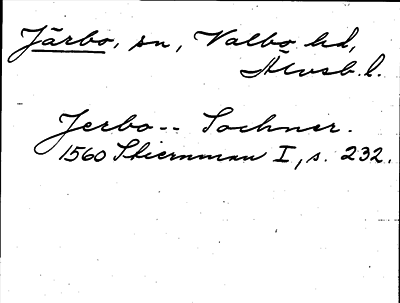 Järbo, sn, Valbo hd,
Älvsb. l.
Jerbo-- Sochner.
1560 Stiernman I, s. 232.